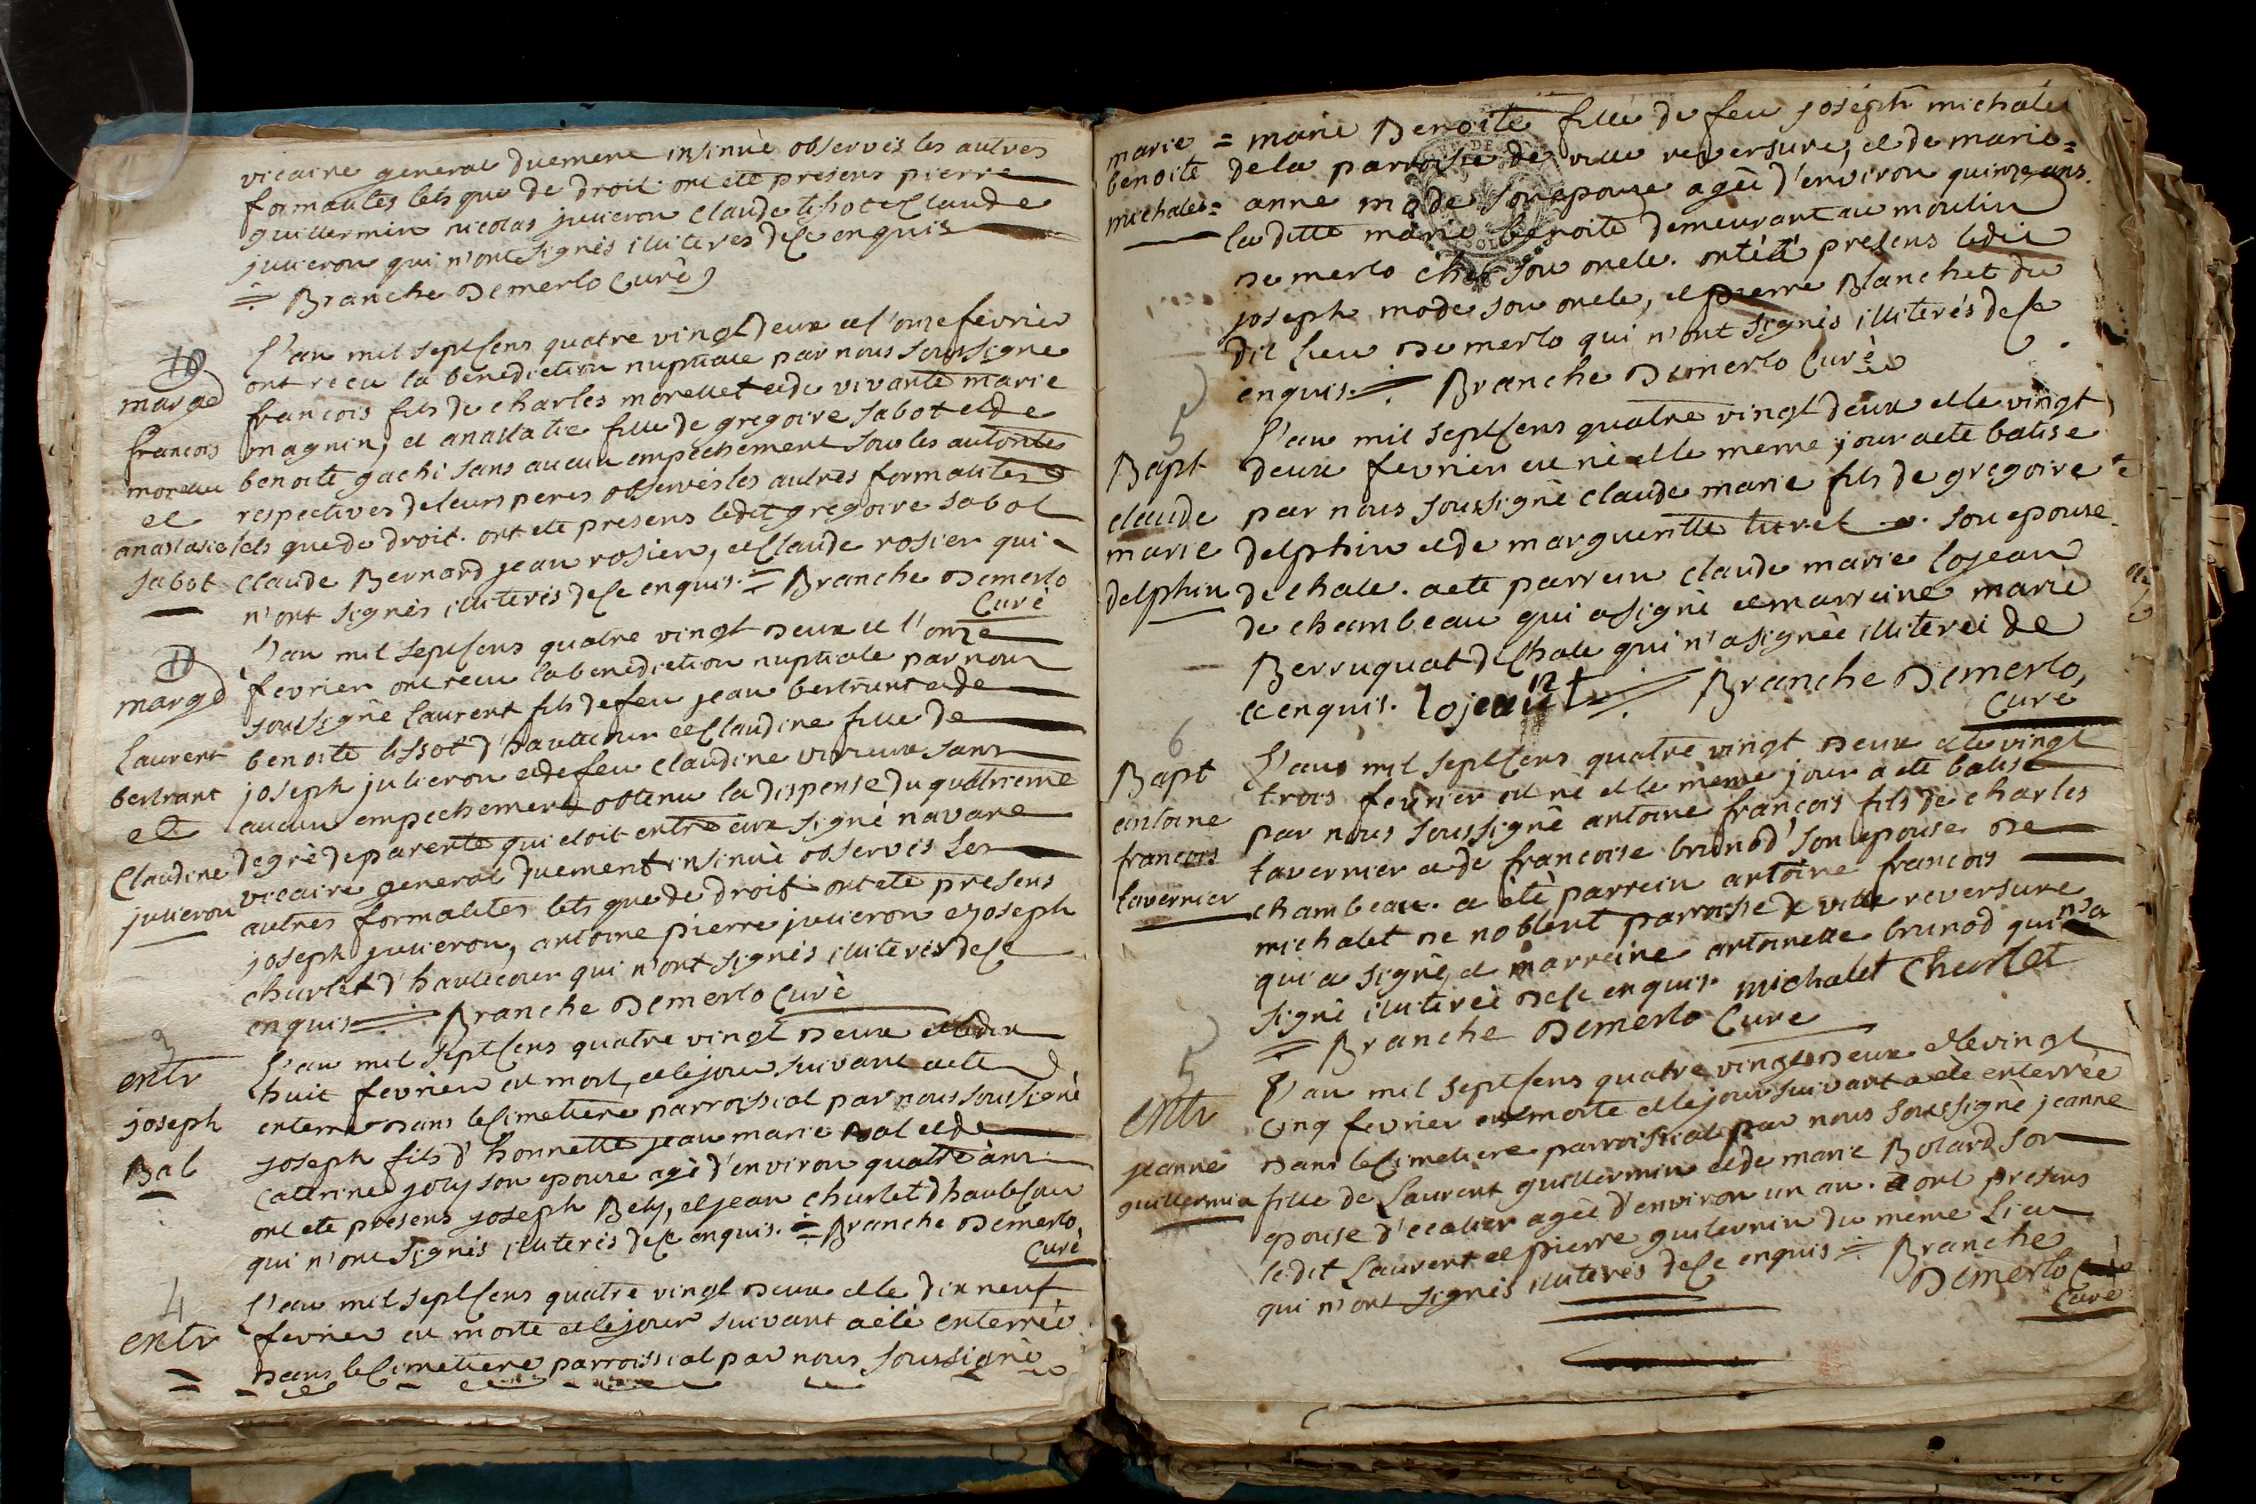 vicaire general duement insinuè observés les autres
formalités tels que de droit. ont ete presens pierre
guillermin nicolas juvieron Claude tissot et Claude
juvieron qui n'ont signès illiteres de ce enquis
= Branche De merlo Curè
10
marge
francois
moreau
et
anastasie
sabot
L'an mil sept cens quatre vingt deux et l'onze fevrier
ont recu la benediction nuptiale par nous soussigne
francois fils de charles morellet et de vivante marie
magnin, et anastasie fille de gregoire sabot et de
benoite gachi sans aucun empechement sous les autorités
respectives de leurs peres observés les autres formalités
tels que de droit. ont ete presens ledit gregoire sabot
Claude Bernard jean rosier, et Claude rosier qui
n'ont signès illiterés de ce enquis. = Branche De merlo
Curè
11
marge
laurent
bertrant
et
Claudine
julieron
L'an mil sept cens quatre vingt Deux et l'onze
fevrier ont recu la benediction nuptiale par nous
soussignè laurent fils de feu jean bertrant et de
benoite tissot d'hautecour et Claudine fille de
joseph julieron et de feu claudine sans
aucun empechement obtenu la dispense du quatrieme
degrè de parenté qui etoit entre eux signè navare
vicaire general duement insinuè observés les
autres formalites tels que de droit. ont ete presens
joseph juvieron, antoine pierre juvieron et joseph
churlet d'hautecour qui n'ont signès illiterés de ce
enquis = Branche De merlo Curè
3
entr
joseph
Bal
L'an mil sept cens quatre vingt Deux et le dix
huit fevrier est mort, et le jour suivant a ete
enterre Dans le Cimetiere parroissial par nous soussignè
joseph fils d'honnette jean marie Bal et de
Caterine joly son epouse agè d'environ quatre ans
ont ete presens joseph Bely, et jean churlet d'hautecour
qui n'ont signès illiterés de ce enquis. = Branche De merlo,
Curè
4
entr
=
L'an mil sept cens quatre vingt Deux et le dix neuf
fevrier est morte et le jour suivant a été enterrée
Dans le Cimetiere parroissial par nous soussignè
marie
benoite
michalet =
= marie Benoite fille de feu joseph michalet
de la parroisse de ville reversure, et de marie =
anne mode son epouse agèe d'environ quinze ans.
la ditte marie benoite demeurant au moulin
De merlo chés son oncle. ont été presens ledit
joseph mode son oncle, et pierre Blanchet du
dit lieu De merlo qui n'ont signès illiterés de ce
enquis. = Branche De merlo Curè
5
Bapt
claude
marie
delphin
L'an mil sept cens quatre vingt deux et le vingt
deux fevrier est nè et le meme jour a ete batise
par nous soussignè claude marie fils de gregoire
delphin et de margueritte turel son epouse
de chale. a ete parrein claude marie lojean
de chambeau qui a signè et marreine marie
Berruquat de Chale qui n'a signèe illiterèe de
ce enquis. lojean = Branche De merlo,
Curè
6
Bapt
antoine
francois
tavernier
L'an mil sept cens quatre vingt Deux et le vingt
trois fevrier est nè et le mème jour a ete batise
par nous soussignè antoine françois fils de charles
tavernier et de francoise brunod son epouse De
chambeau. a été parrein antoine francois
michalet De noblent parroisse de ville reversure
qui a signè, et marreine antoinette brunod qui n'a
signè illiterèe De ce enquis. michalet Churlet
= Branche De merlo Cure
5
entr
jeanne
guillermin
L'an mil sept cens quatre vingt Deux et le vingt
cinq fevrier est morte et le jour suivant a ète enterrèe
Dans le Cimetiere parroissial par nous soussignè jeanne
fille de Laurent guillermin et de marie Bolard son
epouse d'ecalier agèe d'environ un an. ont presens
ledit Laurent et pierre guillermin du même lieu
qui n'ont signès illiterés de ce enquis = Branche
De merlo
Curè